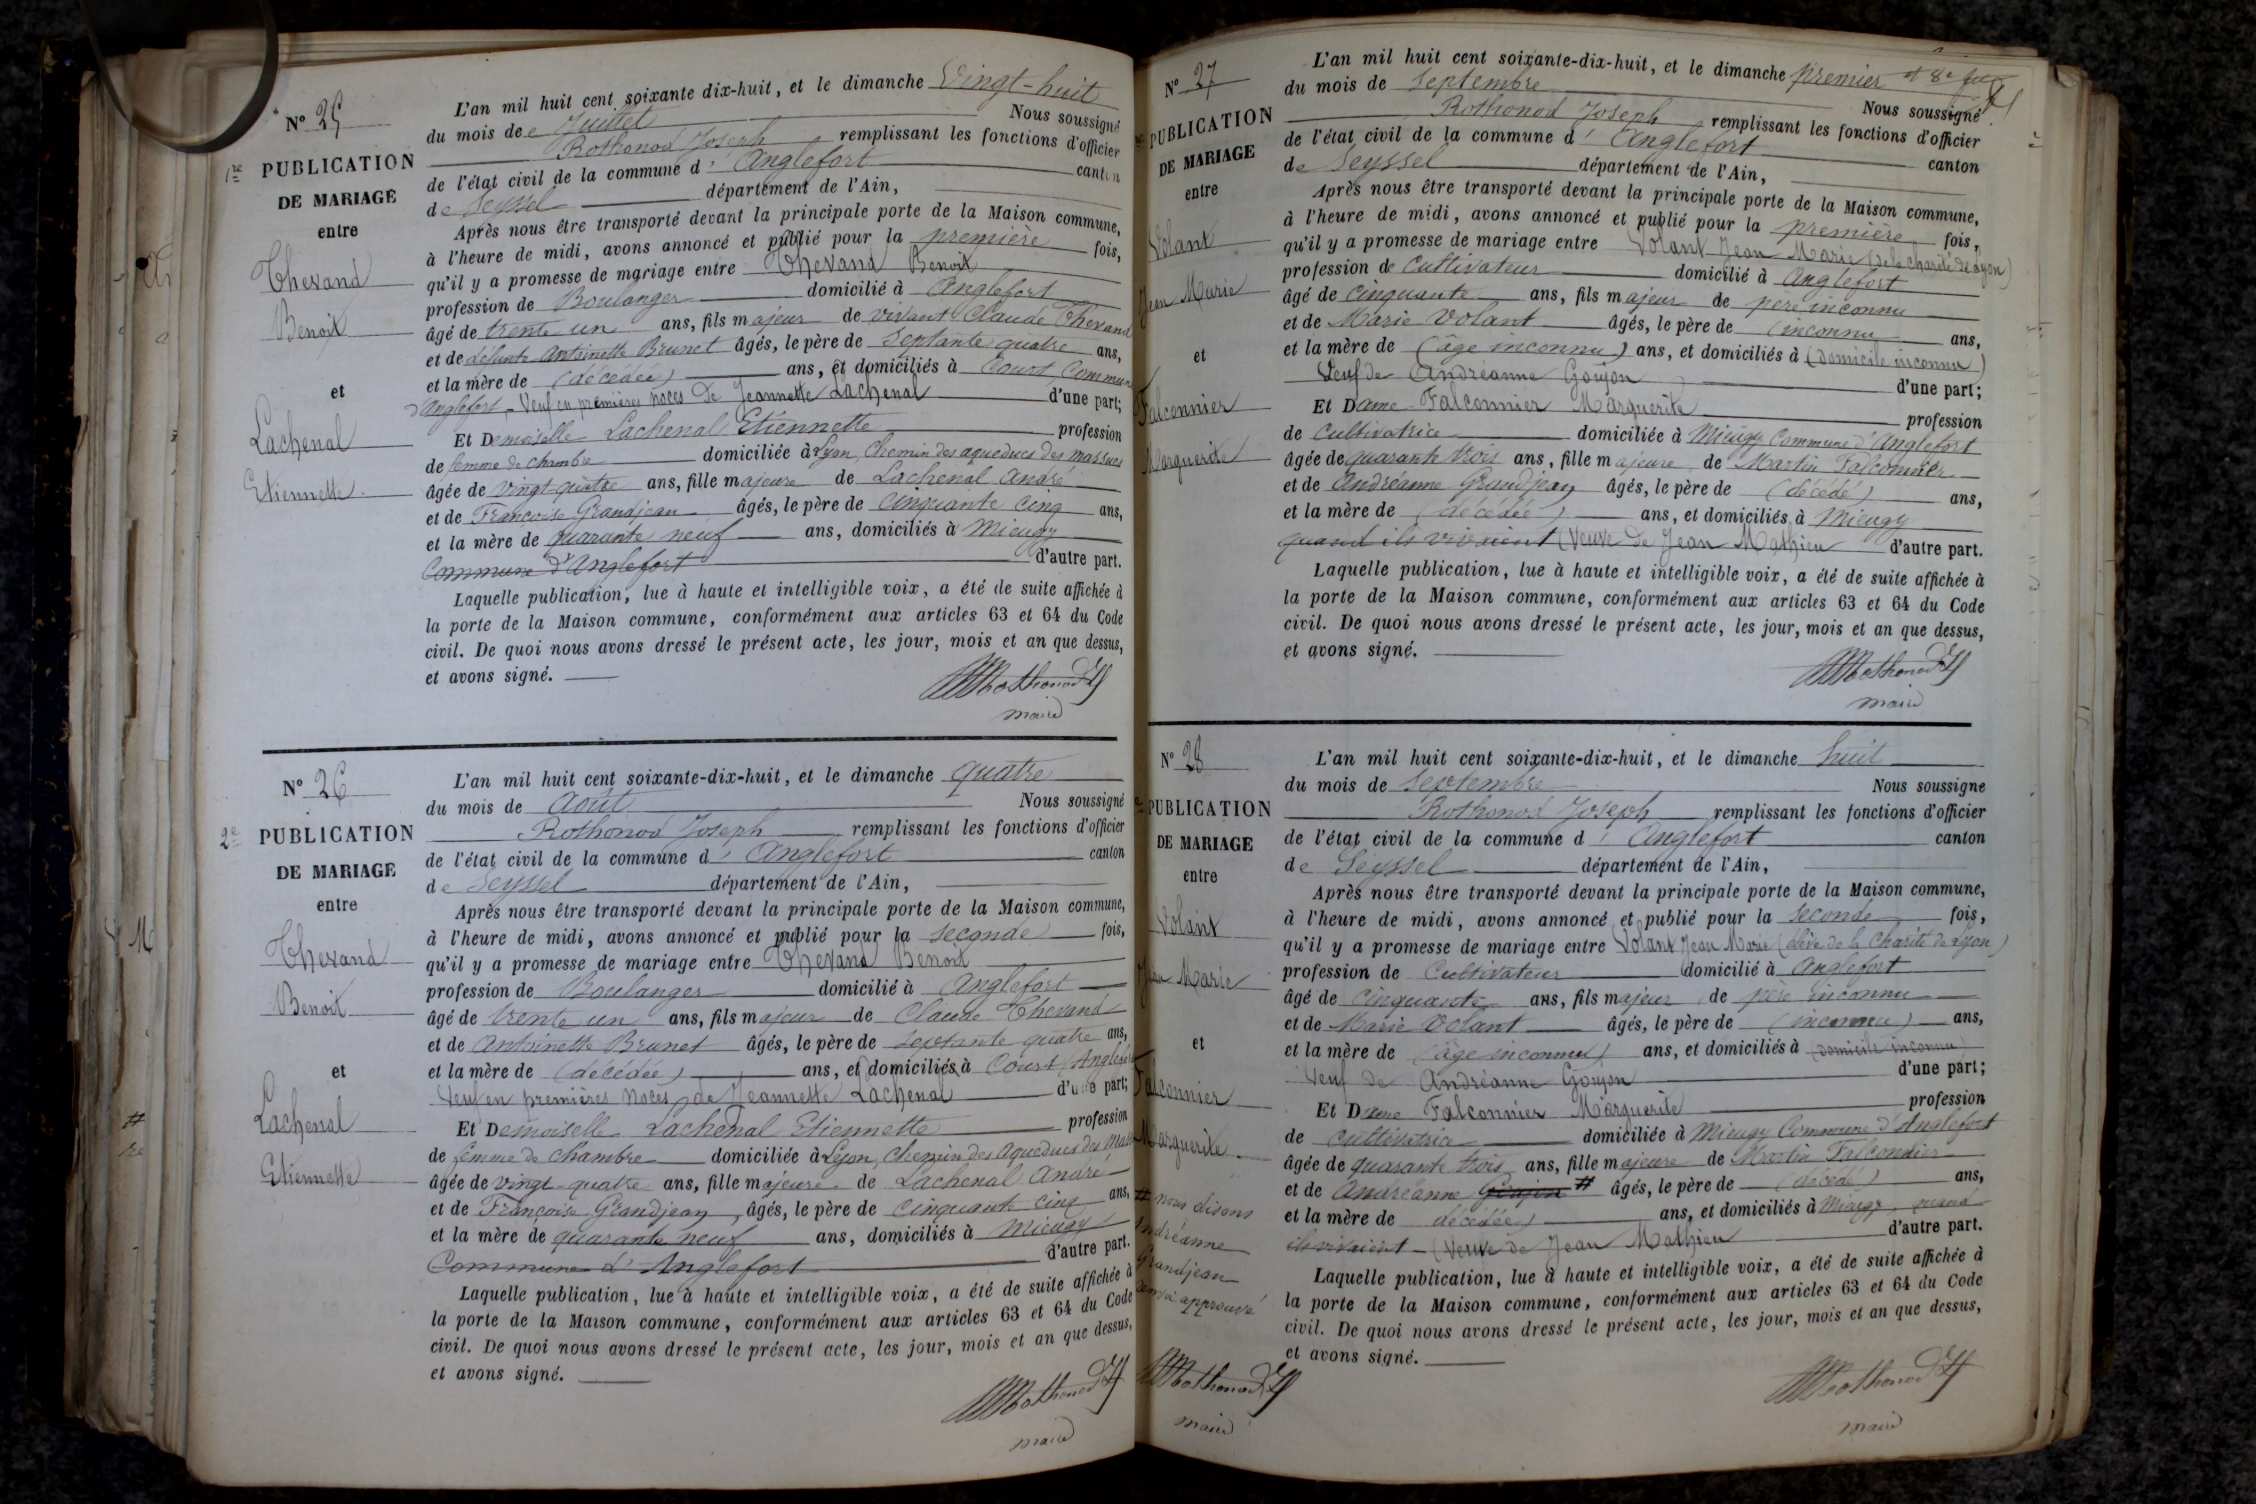 N° 25
1re PUBLICATION
DE MARIAGE
entre
Thevand
Benoit
et
Lachenal
Etiennette
L'an mil huit cent soixante dix-huit, et le dimanche Vingt-huit
du mois de Juillet Nous soussigné
Rothonod Joseph remplissant les fonctions d'officier
de l'état civil de la commune d' Anglefort canton
de Seyssel département de l'Ain,
Après nous être transporté devant la principale porte de la Maison commune,
à l'heure de midi, avons annoncé et publié pour la première fois,
qu'il y a promesse de mariage entre Thevand Benoit
profession de Boulanger domicilié à Anglefort
âgé de trente un ans, fils majeur de vivant Claude Thevand
et de défunte Antoinette Brunet âgés, le père de septante quatre ans,
et la mère de (décédée) ans, et domiciliés à Court, Commune
d'Anglefort - Veuf en premières noces de Jeannette Lachenal d'une part;
Et Demoiselle Lachenal Etiennette profession
de femme de chambre domiciliée à Lyon, Chemin des aqueducs des massues
âgée de vingt-quatre ans, fille majeure de Lachenal André
et de Françoise Grandjean âgés, le père de cinquante cinq ans,
et la mère de quarante neuf ans, domiciliés à Mieugy
Commune d'Anglefort d'autre part.
Laquelle publication, lue à haute et intelligible voix, a été de suite affichée à
la porte de la Maison commune, conformément aux articles 63 et 64 du Code
civil. De quoi nous avons dressé le présent acte, les jour, mois et an que dessus,
et avons signé.
Rothonod J
maire
N° 26
2e PUBLICATION
DE MARIAGE
entre
Thevand
Benoit
et
Lachenal
Etiennette
L'an mil huit cent soixante-dix-huit, et le dimanche quatre
du mois de Août Nous soussigné
Rothonod Joseph remplissant les fonctions d'officier
de l'état civil de la commune d' Anglefort canton
de Seyssel département de l'Ain,
Après nous être transporté devant la principale porte de la Maison commune,
à l'heure de midi, avons annoncé et publié pour la seconde fois,
qu'il y a promesse de mariage entre Thevand Benoit
profession de Boulanger domicilié à Anglefort
âgé de trente un ans, fils majeur de Claude Thevand
et de Antoinette Brunet âgés, le père de septante quatre ans,
et la mère de (décédée) ans, et domiciliés à Court (Anglefort
Veuf en premières noces de Jeannette Lachenal d'une part;
Et Demoiselle Lachenal Etiennette profession
de femme de chambre domiciliée à Lyon, chemin des Aqueducs des
âgée de vingt-quatre ans, fille majeure de Lachenal André
et de Françoise Grandjean, âgés, le père de cinquante cinq ans,
et la mère de quarante neuf ans, domiciliés à Mieugy
Commune d'Anglefort d'autre part.
Laquelle publication, lue à haute et intelligible voix, a été de suite affichée à
la porte de la Maison commune, conformément aux articles 63 et 64 du Code
civil. De quoi nous avons dressé le présent acte, les jour, mois et an que dessus,
et avons signé.
Rothonod J
maire
N° 27
PUBLICATION
DE MARIAGE
entre
Volant
Jean Marie
et
Falconnier
Marguerite
L'an mil huit cent soixante-dix-huit, et le dimanche premier
du mois de Septembre Nous soussigné
Rothonod Joseph remplissant les fonctions d'officier
de l'état civil de la commune d' Anglefort canton
de Seyssel département de l'Ain,
Après nous être transporté devant la principale porte de la Maison commune,
à l'heure de midi, avons annoncé et publié pour la première fois,
qu'il y a promesse de mariage entre Volant Jean Marie (de la charité de Lyon)
profession de Cultivateur domicilié à Anglefort
âgé de cinquante ans, fils majeur de père inconnu
et de Marie Volant âgés, le père de (inconnu ans,
et la mère de (âge inconnu) ans, et domiciliés à (domicile inconnu)
Veuf de Andréanne Goujon d'une part;
Et Dame Falconnier Marguerite profession
de Cultivatrice domiciliée à Mieugy Commune d'Anglefort
âgée de quarante trois ans, fille majeure de Martin Falconnier
et de Andréanne Grandjean âgés, le père de (décédé) ans,
et la mère de (décédée) ans, et domiciliés à Mieugy
quand ils vivaient (Veuve de Jean Mathieu d'autre part.
Laquelle publication, lue à haute et intelligible voix, a été de suite affichée à
la porte de la Maison commune, conformément aux articles 63 et 64 du Code
civil. De quoi nous avons dressé le présent acte, les jour, mois et an que dessus,
et avons signé.
Rothonod J
maire
N° 28
PUBLICATION
DE MARIAGE
entre
Volant
Jean Marie
et
Falconnier
Marguerite
# nous disons
Andréanne
Grandjean
approuvé
Rothonod J
maire
L'an mil huit cent soixante-dix-huit, et le dimanche huit
du mois de Septembre Nous soussigné
Rothonod Joseph remplissant les fonctions d'officier
de l'état civil de la commune d' Anglefort canton
de Seyssel département de l'Ain,
Après nous être transporté devant la principale porte de la Maison commune,
à l'heure de midi, avons annoncé et publié pour la seconde fois,
qu'il y a promesse de mariage entre Volant Jean Marie (élève de la Charité de Lyon)
profession de Cultivateur domicilié à Anglefort
âgé de cinquante ans, fils majeur de père inconnu
et de Marie Volant âgés, le père de (inconnu) ans,
et la mère de (âge inconnu) ans, et domiciliés à (domicile inconnu)
Veuf de Andréanne Goujon d'une part;
Et Dame Falconnier Marguerite profession
de cultivatrice domiciliée à Mieugy Commune d'Anglefort
âgée de quarante trois ans, fille majeure de Martin Falconnier
et de Andréanne Goujon # âgés, le père de (décédé) ans,
et la mère de décédée) ans, et domiciliés à Mieugy, quand
ils vivaient - (Veuve de Jean Mathieu d'autre part.
Laquelle publication, lue à haute et intelligible voix, a été de suite affichée à
la porte de la Maison commune, conformément aux articles 63 et 64 du Code
civil. De quoi nous avons dressé le présent acte, les jour, mois et an que dessus,
et avons signé.
Rothonod J
maire